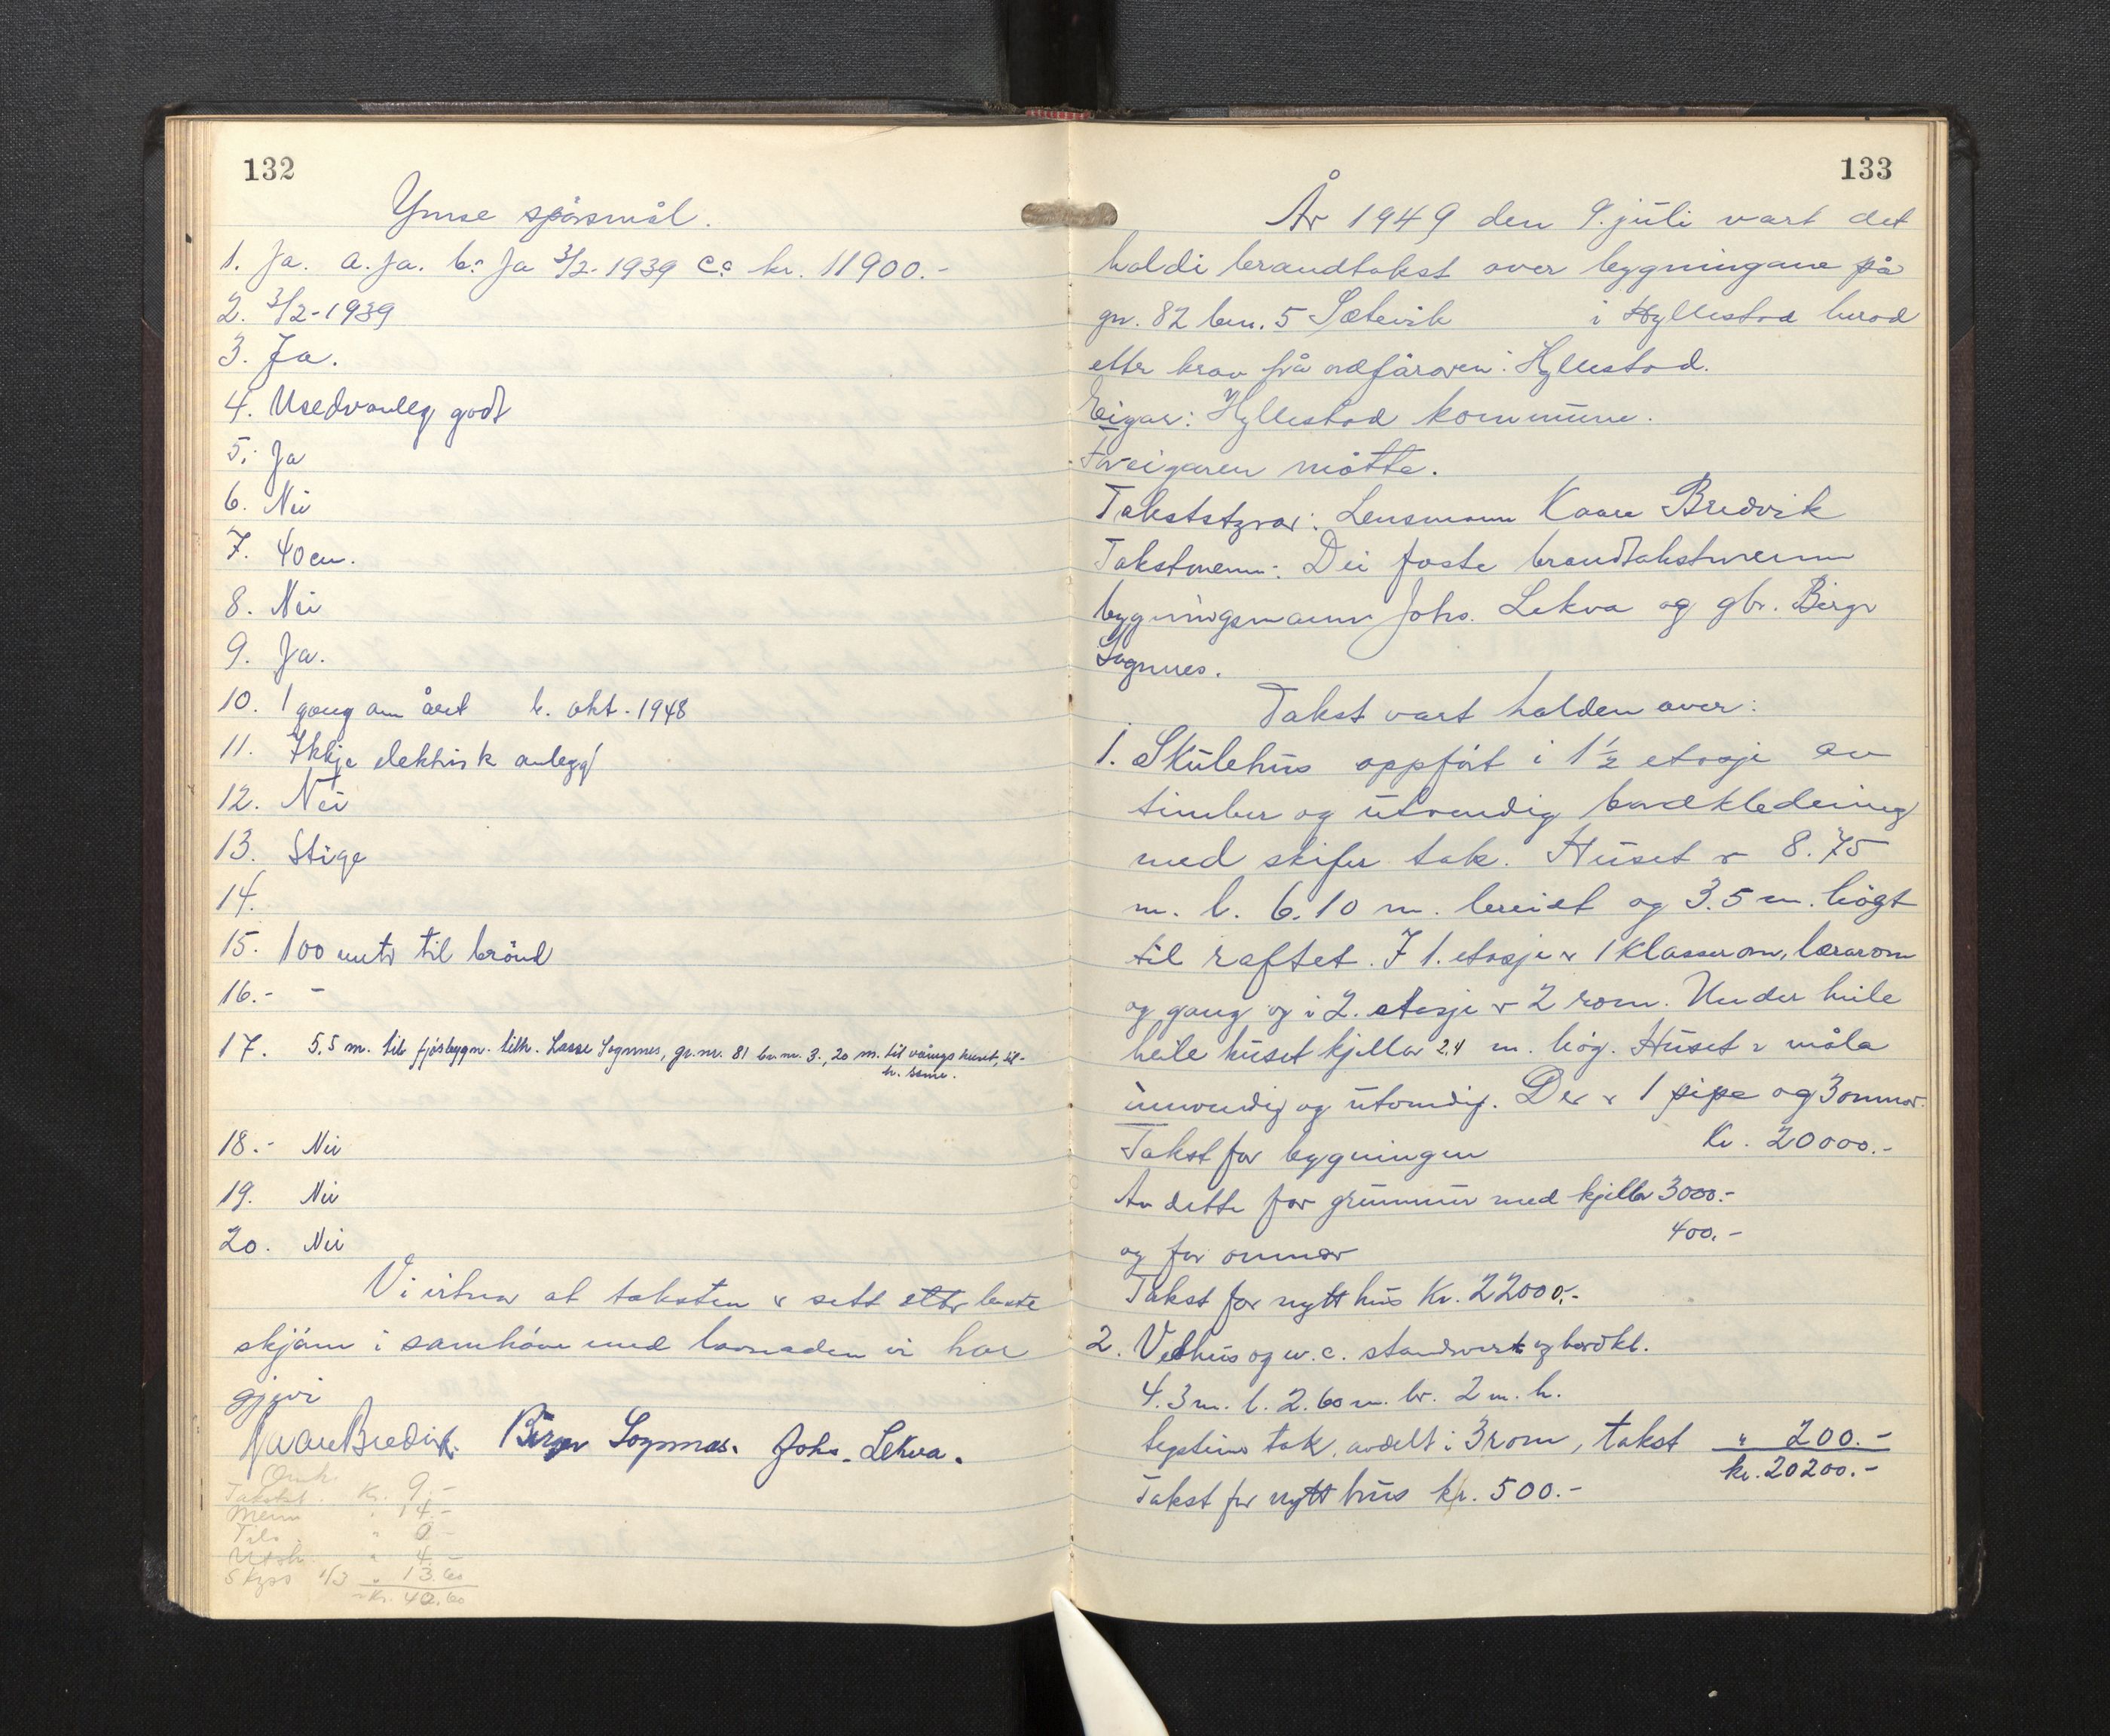 132
Ymse spörsmål.
1. Ja. a. Ja. b: Ja 3/2-1939 c: kr. 11900.-
2. 3/2-1939
3. Ja.
4. Usedvanleg godt
5. Ja
6. Nei
7. 40 cm.
8. Nei
9. Ja.
10. 1 gong om året b. okt. 1948
11. Ikkje elektrisk anlegg
12. Nei
13. Stige
14.
15. 100 meter til brönd
16.- -
17. 5,5 m. til fjösbygn. tilh. Lasse Sognnes, gr.nr. 81 br.nr. 3., 20 m. til vånings huset, til-
h. same.
18.- Nei
19. Nei
20. Nei
Vi vitnar at taksten er sett etter beste
skjön i samhöve med lovnaden vi har
gjevi
Kaare Bredvik. Birger Sognnes. Johs. Lekva.
Omk.
Takstst. Kr. 9.-
Menn " 14.-
Tils. " 0-
Utsk. " 4.-
Skyss 1/3 " 13.60
Kr. 40.60
133
År 1949 den 9. juli vart det
haldi brandtakst over bygningane på
gr. 82 bnr. 5 Sætevik i Hyllestad herad
etter krav frå ordföraren i Hyllestad.
Eigar: Hyllestad kommune.
For eigaren mötte.
Takststyrar: Lensmann Kaare Bredvik
Takstmenn: Dei faste brandtakstmenn
bygningsmann Johs. Lekva og gbr. Birger
Sognnes.
Takst vart halden over:
1. Skulehus oppfört i 1 1/2 etasje av
timber og utvendig bordkledning
med skifer tak. Huset er 8.75
m. l. 6.10 m. breidt og 3.5 m. högt
til raftet. I 1. etasje er 1 klasserom, lærarom
og gang og i 2. etasje er 2 rom. Under heile
heile huset kjellar 2,4 m. hög. Huset er måla
innvendig og utvendig. Der er 1 pipe og 3 omnar.
Takst for bygningen Kr. 20000.-
Av dette for grunnmur med kjellar 3000.-
og for omnar 400.-
Takst for nytt hus Kr. 22000.-
2. Vedhus og w.c. standverk og bordkl.
4.3 m. l. 2.60 m. br. 2 m. h.
tegsteins tak, avdelt i 3 rom, takst " 200.-
kr. 20200.-
Takst for nytt hus kr. 500.-